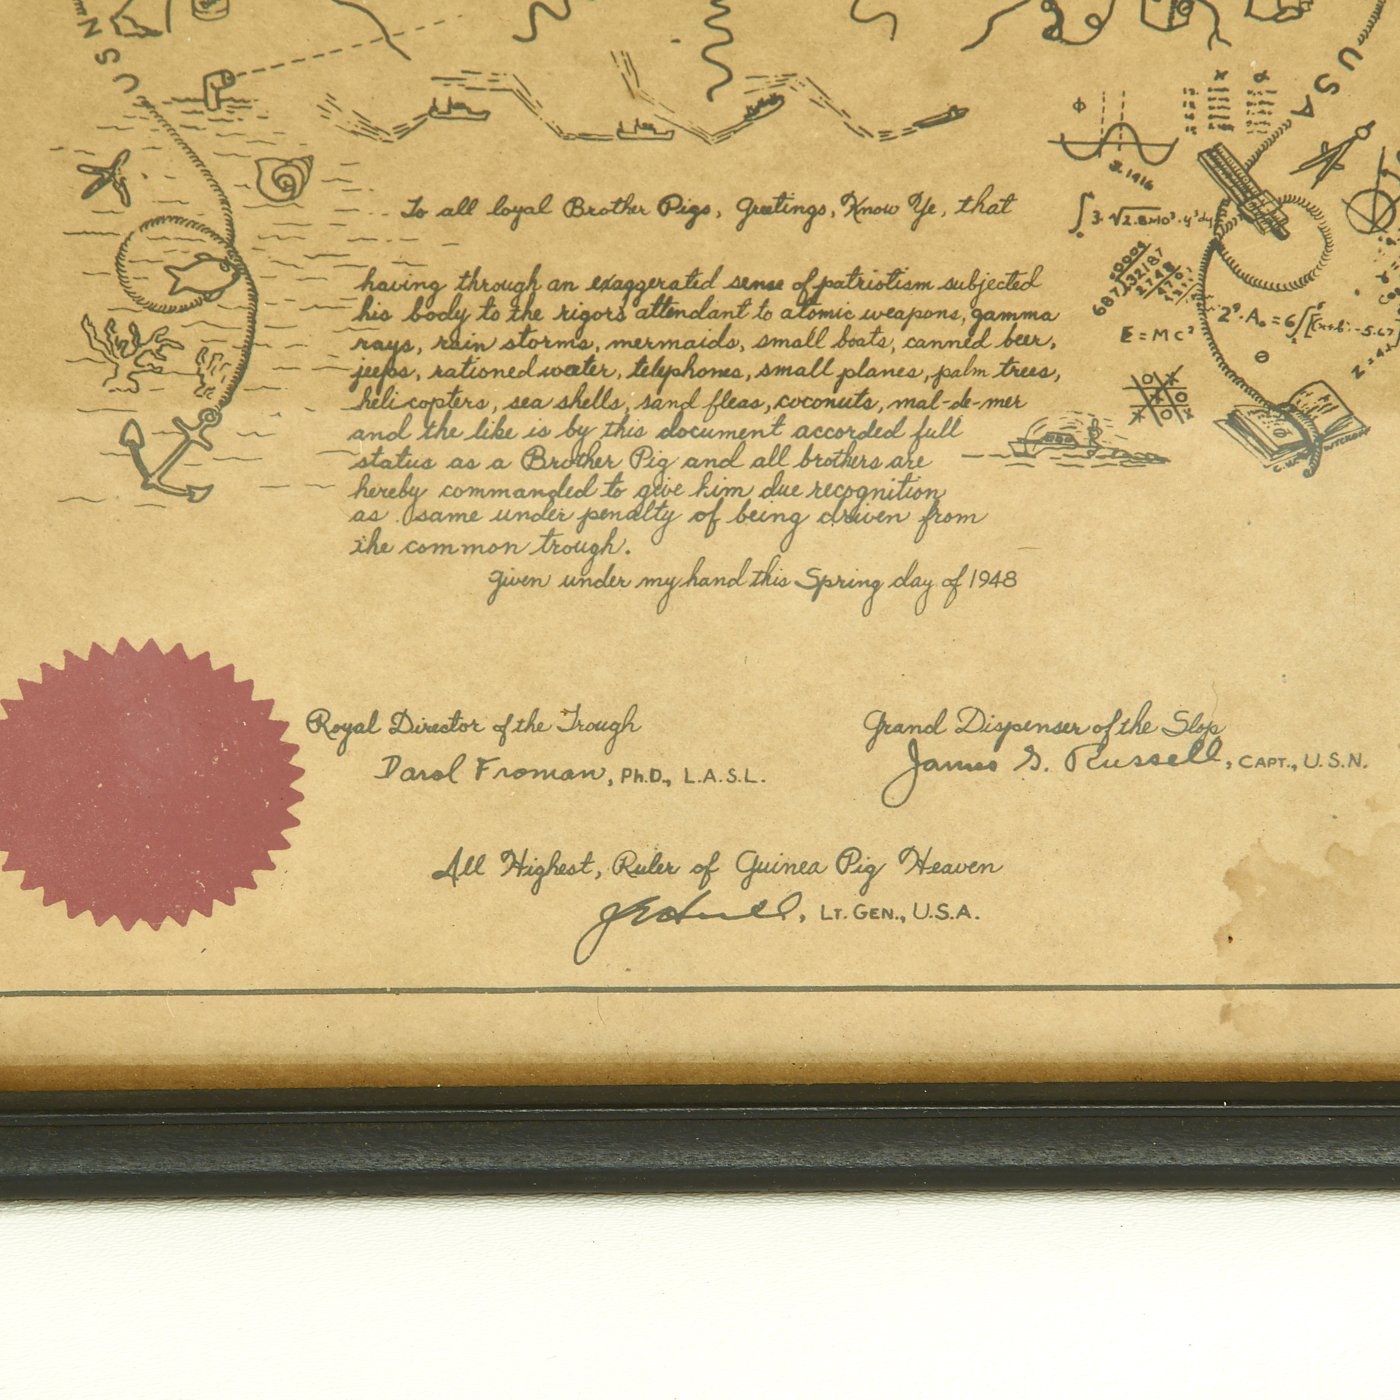 USN
USA
To all loyal Brother Pigs, Greetings, Know Ye, that
having through an exaggerated sense of patriotism subjected
his body to the rigors attendant to atomic weapons, gamma
rays, rain storms, mermaids, small boats, canned beer,
jeeps, rationed water, telephones, small planes, palm trees,
helicopters, sea shells, sand fleas, coconuts, mal-de-mer
and the like is by this document accorded full
status as a Brother Pig and all brothers are
hereby commanded to give him due recognition
as same under penalty of being driven from
the common trough.
Given under my hand this Spring day of 1948
Φ
3.1416
E=MC²
Θ
Royal Director of the Trough
Darol Froman, Ph.D., L.A.S.L.
Grand Dispenser of the Slop
James S. Russell, CAPT., U.S.N.
All Highest, Ruler of Guinea Pig Heaven
JEHull, LT. GEN., U.S.A.